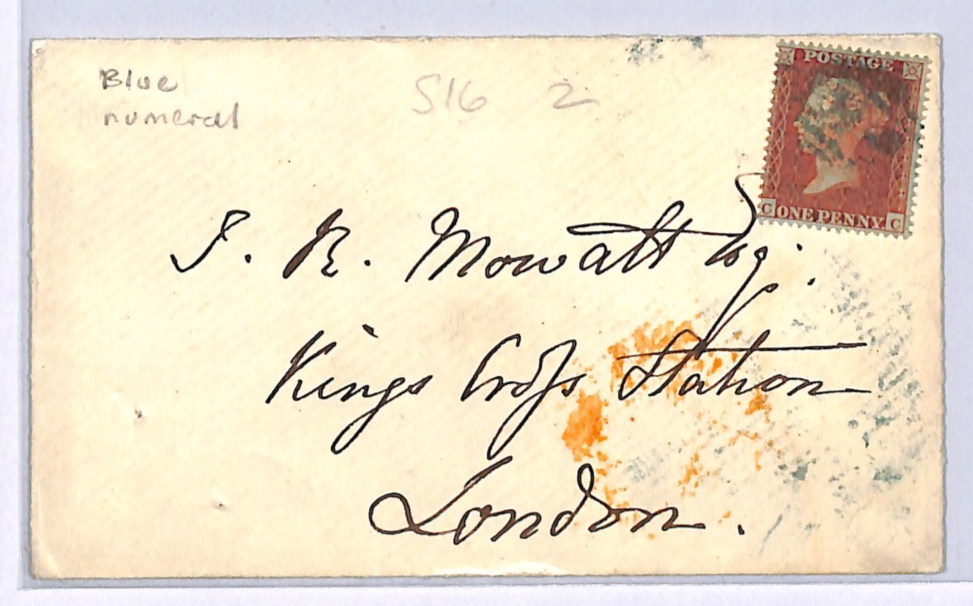 Blue
numeral
S16 2
POSTAGE
C ONE PENNY C
J. R. Mowatt Esq.
Kings Cross Station
London.